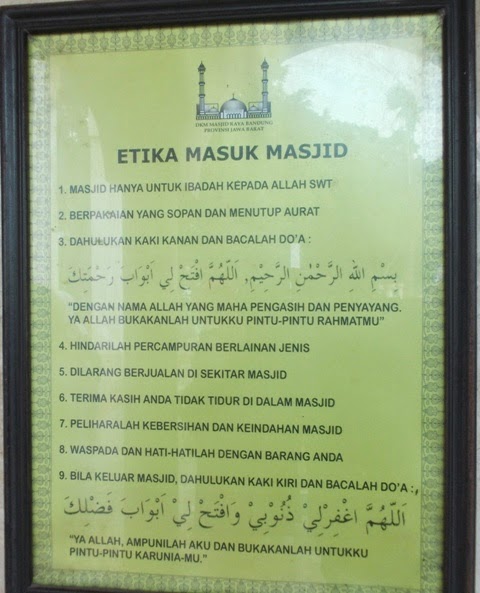 DKM MASJID RAYA BANDUNG
PROVINSI JAWA BARAT
ETIKA MASUK MASJID
1. MASJID HANYA UNTUK IBADAH KEPADA ALLAH SWT
2. BERPAKAIAN YANG SOPAN DAN MENUTUP AURAT
3. DAHULUKAN KAKI KANAN DAN BACALAH DO'A :
بِسْمِ اللهِ الرَّحْمٰنِ الرَّحِيْمِ, اَللّٰهُمَّ افْتَحْ لِيْ اَبْوَابَ رَحْمَتِكَ
"DENGAN NAMA ALLAH YANG MAHA PENGASIH DAN PENYAYANG.
YA ALLAH BUKAKANLAH UNTUKKU PINTU-PINTU RAHMATMU"
4. HINDARILAH PERCAMPURAN BERLAINAN JENIS
5. DILARANG BERJUALAN DI SEKITAR MASJID
6. TERIMA KASIH ANDA TIDAK TIDUR DI DALAM MASJID
7. PELIHARALAH KEBERSIHAN DAN KEINDAHAN MASJID
8. WASPADA DAN HATI-HATILAH DENGAN BARANG ANDA
9. BILA KELUAR MASJID, DAHULUKAN KAKI KIRI DAN BACALAH DO'A :
اَللّٰهُمَّ اغْفِرْلِيْ ذُنُوْبِيْ وَافْتَحْ لِيْ اَبْوَابَ فَضْلِكَ
"YA ALLAH, AMPUNILAH AKU DAN BUKAKANLAH UNTUKKU
PINTU-PINTU KARUNIA-MU."